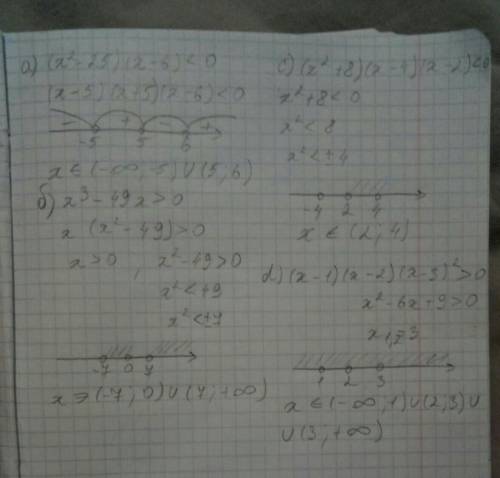 а) (x² - 25)(x - 6) < 0
(x - 5)(x + 5)(x - 6) < 0
- + - +
-5 5 6
x ∈ (-∞; -5) ∪ (5; 6)
б) x³ - 49x > 0
x (x² - 49) > 0
x > 0 , x² - 49 > 0
x² < 49
x² < ±7
-7 0 7
x ∋ (-7; 0) ∪ (7; +∞)
c) (x² + 8)(x - 4)(x - 2) < 0
x² + 8 < 0
x² < 8
x² < ± 4
-4 2 4
x ∈ (2; 4)
d) (x - 1)(x - 2)(x - 3)² > 0
x² - 6x + 9 > 0
1 2 3
x ∈ (-∞; 1) ∪ (2; 3) ∪
∪ (3; +∞)